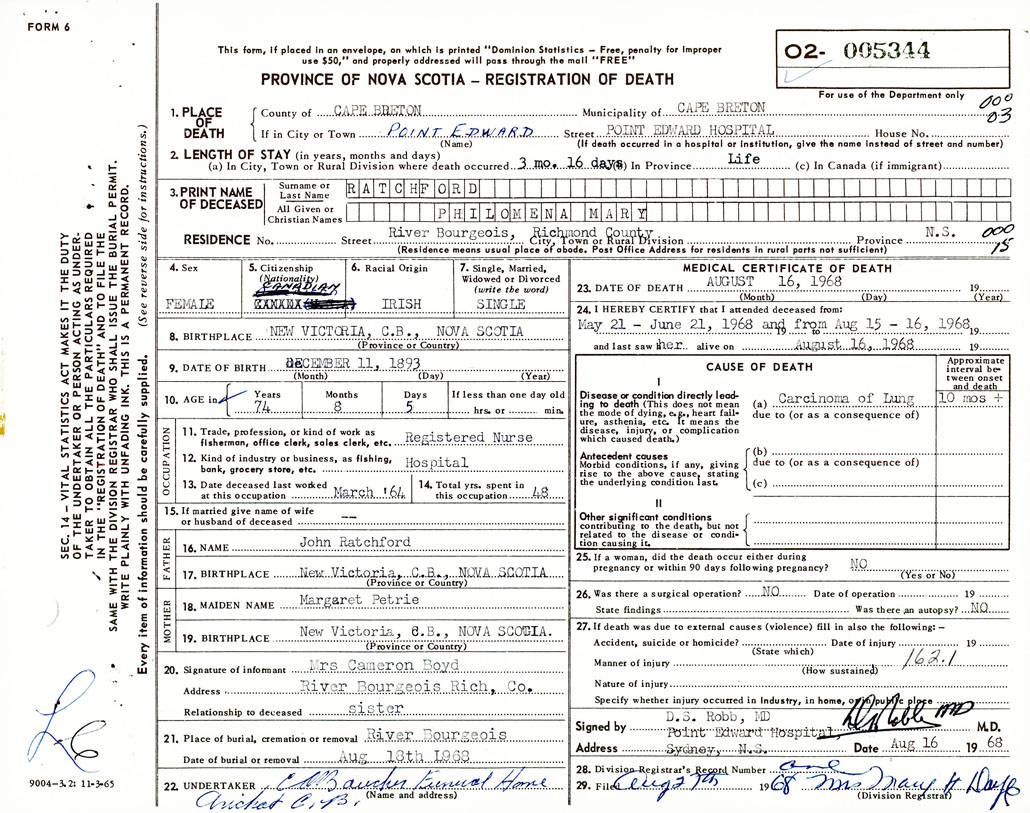 FORM 6
This form, if placed in an envelope, on which is printed "Dominion Statistics – Free, penalty for improper
use $50," and properly addressed will pass through the mail "FREE"
PROVINCE OF NOVA SCOTIA – REGISTRATION OF DEATH
O2- 005344
For use of the Department only
000
03
1. PLACE OF DEATH
County of CAPE BRETON Municipality of CAPE BRETON
If in City or Town POINT EDWARD Street POINT EDWARD HOSPITAL House No.
(Name) (If death occurred in a hospital or institution, give the name instead of street and number)
2. LENGTH OF STAY (in years, months and days)
(a) In City, Town or Rural Division where death occurred 3 mo. 16 days (b) In Province Life (c) In Canada (if immigrant)
3. PRINT NAME OF DECEASED
Surname or Last Name RATCHFORD
All Given or Christian Names PHILOMENA MARY
RESIDENCE No. Street River Bourgeois, Richmond County City, Town or Rural Division Province N.S.
(Residence means usual place of abode. Post Office Address for residents in rural parts not sufficient)
000
15
4. Sex
FEMALE
5. Citizenship
(Nationality)
CANADIAN
6. Racial Origin
IRISH
7. Single, Married,
Widowed or Divorced
(write the word)
SINGLE
8. BIRTHPLACE NEW VICTORIA, C.B., NOVA SCOTIA
(Province or Country)
9. DATE OF BIRTH DECEMBER 11, 1893
(Month) (Day) (Year)
10. AGE in Years Months Days If less than one day old
74 8 5 hrs. or min.
OCCUPATION
11. Trade, profession, or kind of work as
fisherman, office clerk, sales clerk, etc. Registered Nurse
12. Kind of industry or business, as fishing,
bank, grocery store, etc. Hospital
13. Date deceased last worked
at this occupation March '64
14. Total yrs. spent in
this occupation 48
15. If married give name of wife
or husband of deceased --
FATHER
16. NAME John Ratchford
17. BIRTHPLACE New Victoria, C.B., NOVA SCOTIA
(Province or Country)
MOTHER
18. MAIDEN NAME Margaret Petrie
19. BIRTHPLACE New Victoria, C.B., NOVA SCOTIA.
(Province or Country)
20. Signature of informant Mrs Cameron Boyd
Address River Bourgeois Rich, Co.
Relationship to deceased sister
21. Place of burial, cremation or removal River Bourgeois
Date of burial or removal Aug 18th 1968
22. UNDERTAKER Funeral Home
(Name and address)
Arichat C.B.
MEDICAL CERTIFICATE OF DEATH
23. DATE OF DEATH AUGUST 16, 1968 19
(Month) (Day) (Year)
24. I HEREBY CERTIFY that I attended deceased from:
May 21 - June 21, 1968 and from Aug 15 - 16, 1968 19
and last saw her alive on August 16, 1968 19
CAUSE OF DEATH
Approximate interval between onset and death
I
Disease or condition directly leading to death (This does not mean the mode of dying, e.g., heart failure, asthenia, etc. It means the disease, injury, or complication which caused death.)
(a) Carcinoma of Lung 10 mos +
due to (or as a consequence of)
Antecedent causes
Morbid conditions, if any, giving rise to the above cause, stating the underlying condition last.
(b)
due to (or as a consequence of)
(c)
II
Other significant conditions
contributing to the death, but not related to the disease or condition causing it.
25. If a woman, did the death occur either during
pregnancy or within 90 days following pregnancy? NO
(Yes or No)
26. Was there a surgical operation? NO Date of operation 19
State findings Was there an autopsy? NO
27. If death was due to external causes (violence) fill in also the following: –
Accident, suicide or homicide? Date of injury 19
(State which)
Manner of injury 162.1
(How sustained)
Nature of injury
Specify whether injury occurred in industry, in home, or in public place
Signed by D.S. Robb, MD M.D.
Point Edward Hospital,
Address Sydney, N.S. Date Aug 16 1968
28. Division Registrar's Record Number one
29. Filed Aug 27th 1968 Mrs Mary H
(Division Registrar)
SEC. 14 – VITAL STATISTICS ACT MAKES IT THE DUTY
OF THE UNDERTAKER OR PERSON ACTING AS UNDER-
TAKER TO OBTAIN ALL THE PARTICULARS REQUIRED
IN THE "REGISTRATION OF DEATH" AND TO FILE THE
SAME WITH THE DIVISION REGISTRAR WHO SHALL ISSUE THE BURIAL PERMIT.
WRITE PLAINLY WITH UNFADING INK. THIS IS A PERMANENT RECORD.
Every item of information should be carefully supplied. (See reverse side for instructions.)
9004-3.2: 11-3-65